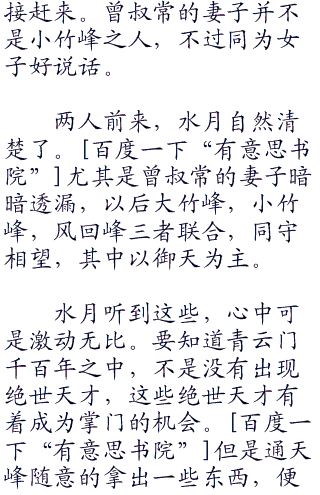 接赶来。曾叔常的妻子并不
是小竹峰之人，不过同为女
子好说话。
两人前来，水月自然清
楚了。[百度一下“有意思书
院”]尤其是曾叔常的妻子暗
暗透漏，以后大竹峰，小竹
峰，风回峰三者联合，同守
相望，其中以御天为主。
水月听到这些，心中可
是激动无比。要知道青云门
千百年之中，不是没有出现
绝世天才，这些绝世天才有
着成为掌门的机会。[百度一
下“有意思书院”]但是通天
峰随意的拿出一些东西，便